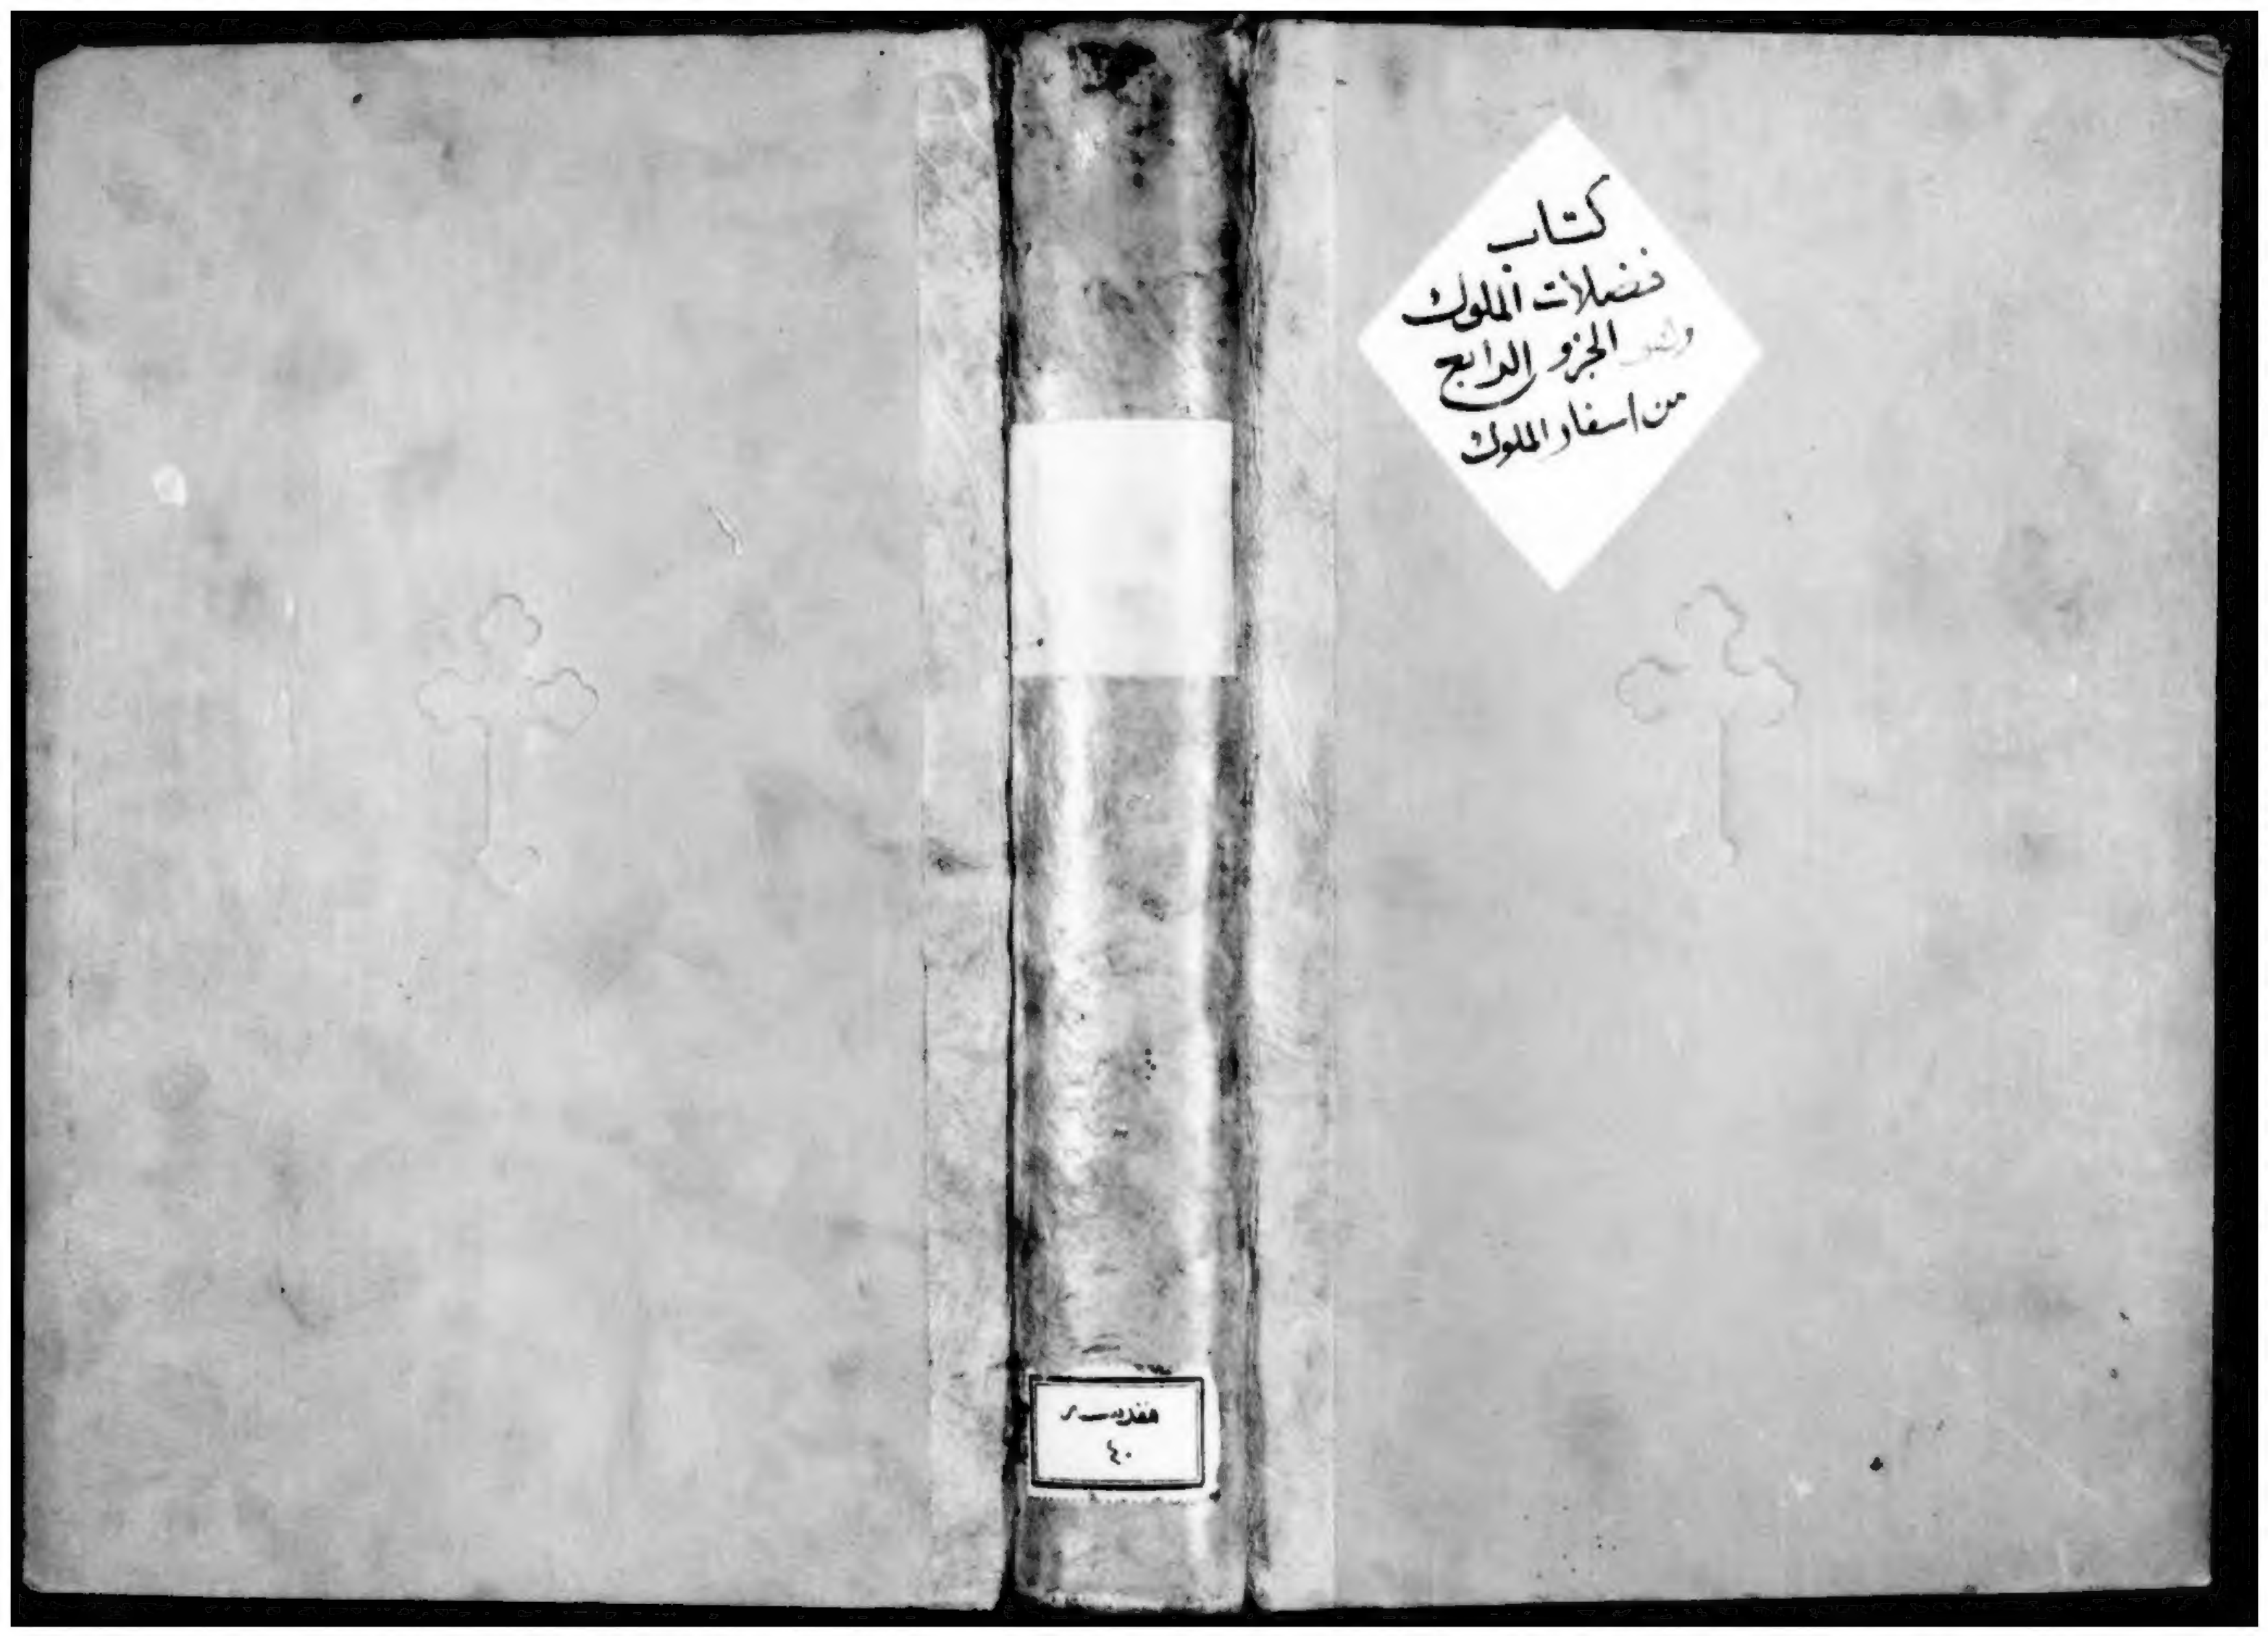 كتاب
فضلات الملوك
وهو الجزو الرابع
من اسفار الملوك
مقدسه
٤٠